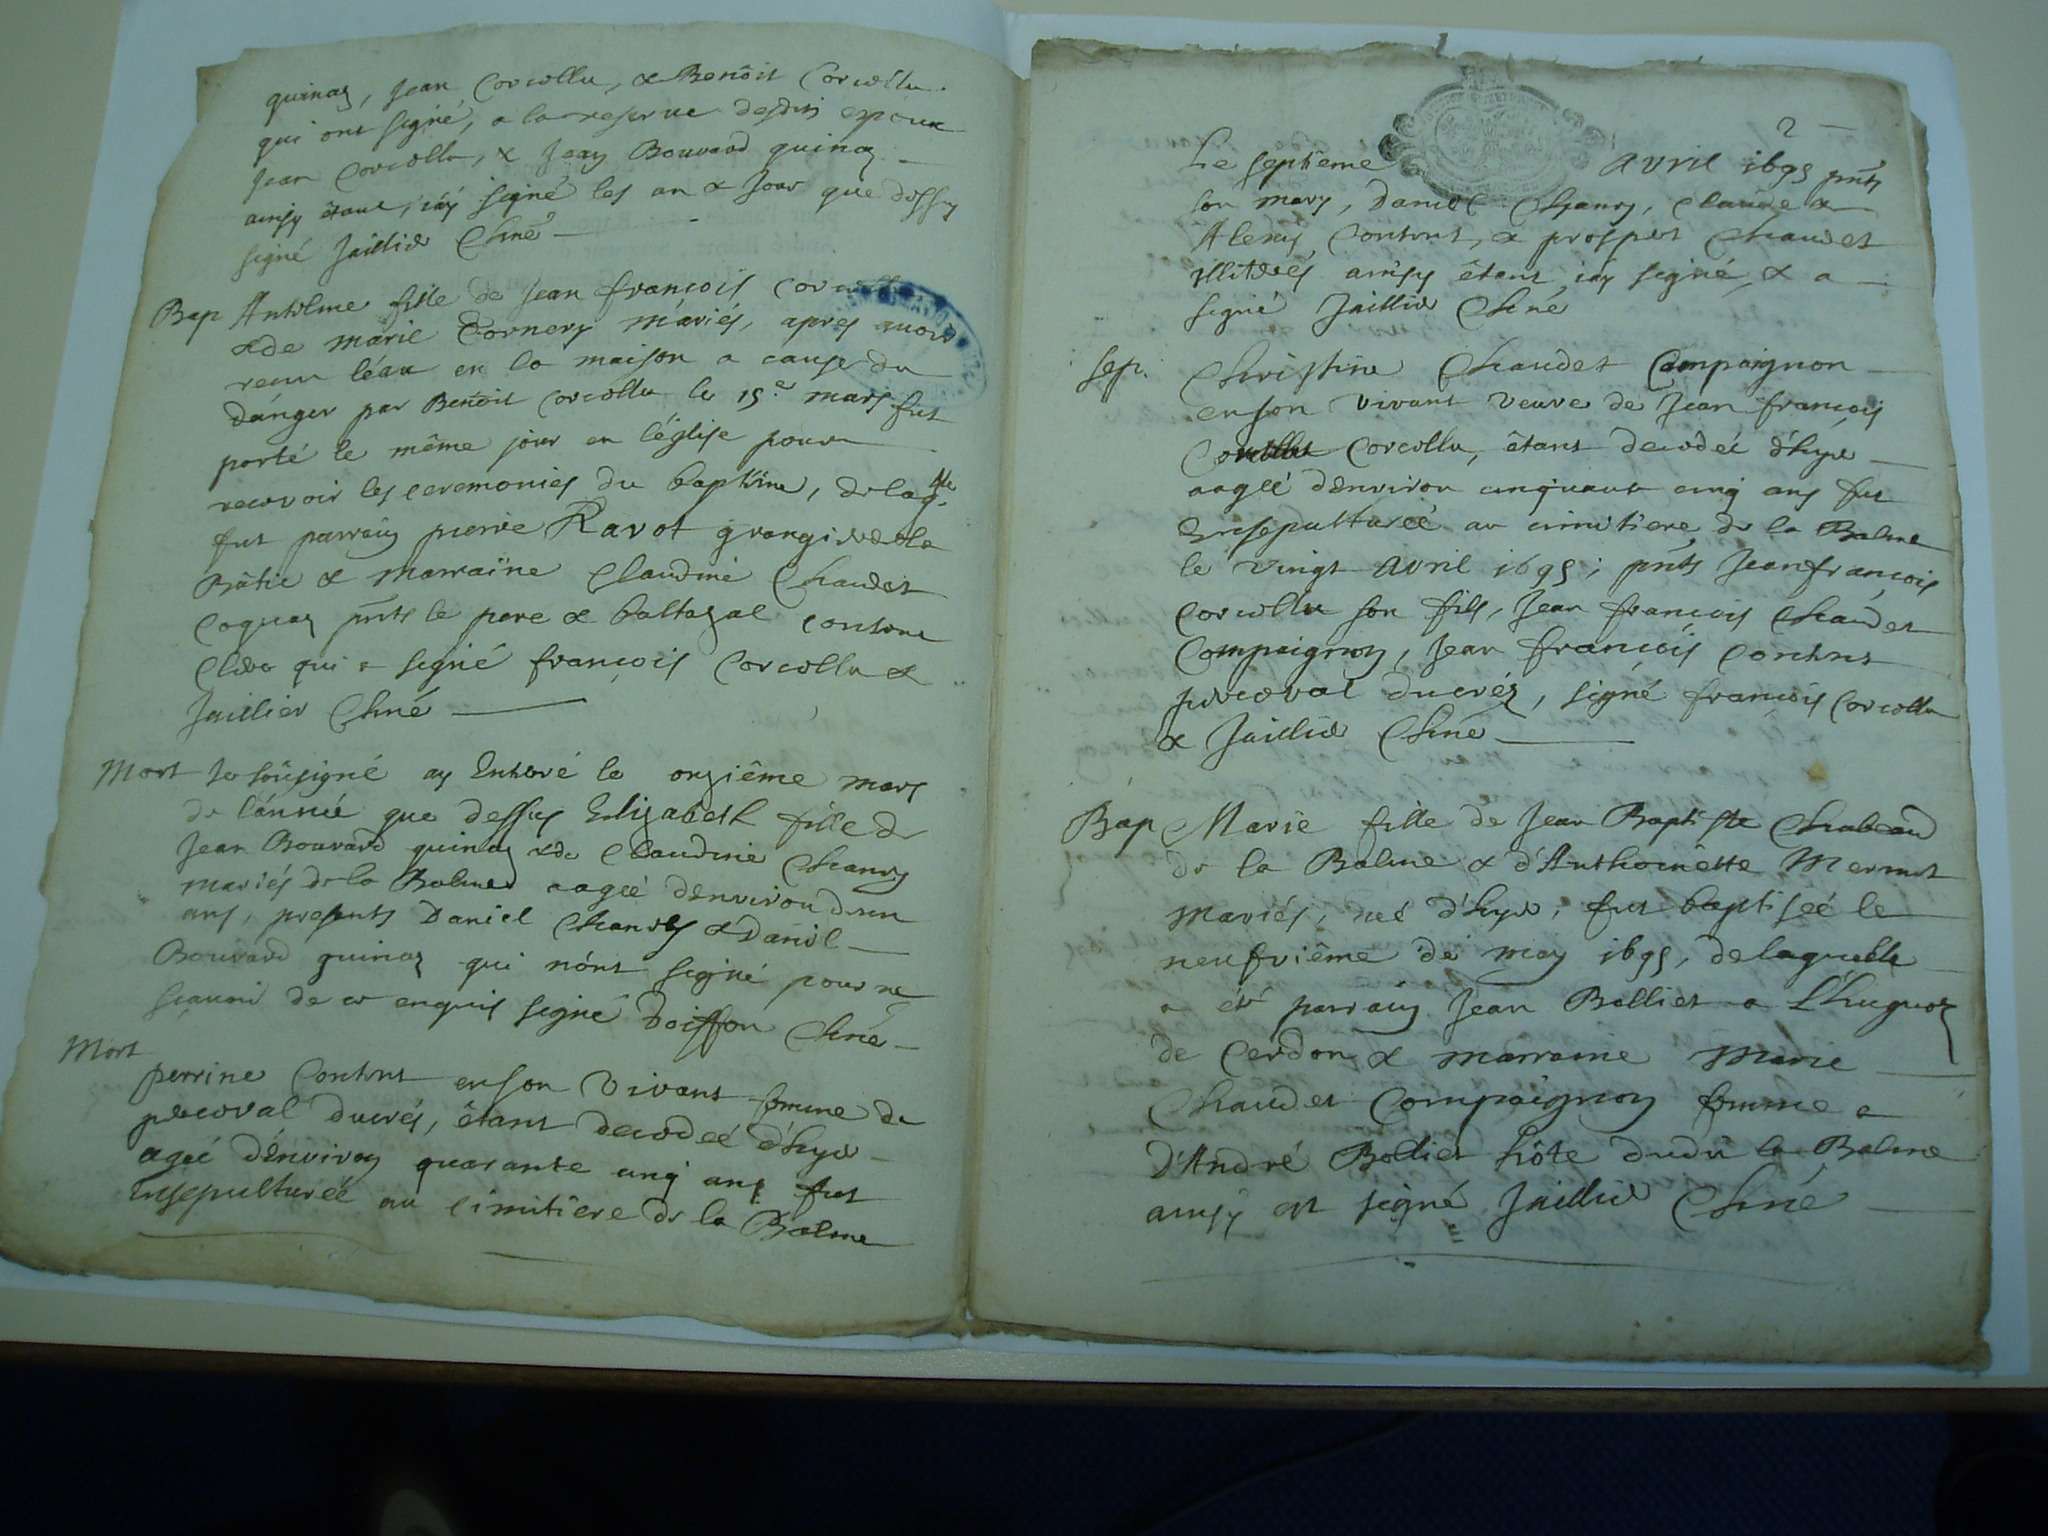 quinaz, Jean Corcellu, & Benôit Corcellu
qui ont signé, a la reserve desdits epoux
Jean Corcellu, & Jean Bouvard quinaz
ainsy êtant, iáy signé les an & Jour que dessus
signé Jaillier Curé
Bap Antelme fille de Jean françois
& de marie Cornery máriés, apres avoir
receu léau en la maison a cause du
dánger par Benôit Corcellu le 15e mars fut
porté le même jour en l'église pour
recevoir les ceremonies du baptême, de laqlle
fut parrain pierre Ravot grangier de la
Bâtie & Marraine Claudine Chaudet
Coquaz pnts le pere & baltazal contene
Clerc qui a signé françois Corcellu &
Jaillier Curé
Mort Je soûsigné ay Enterré le onziême mars
de l'ánnée que dessus Elizabeth fille de
Jean Bouvard quinaz & de Claudine Chanry
mariés de la Balme aagée d'environ d'un
ans, presents Daniel Chanry & Daniel
Bouvard quinaz qui n'ónt signé pour ne
sçavoir de ce enquis signé Doiffon Curé
Mort
perrine Contene en son vivant femme de
perceval ducrés, êtant decedeé d'hyer
ageé d'énviron quarante cinq ans fut
Ensepulturée au cimitiere de la Balme
2
Le septieme avril 1695 pnts
son mary, Daniel Chanry, Claude &
Alexis Contene, & prosper Chaudet
illiterés ainsy êtant iáy signé, & a
signé Jaillier Curé
Sep. Christine Chaudet Compaignon
en son vivant veuve de Jean françois
Corcellu, êtant decedeé d'hyer
aageé d'environ cinquante cinq ans fut
Ensepultureé au cimitiere de la Balme
le vingt Avril 1695; pnts Jean françois
Corcellu son fils, Jean françois Chaudet
Compaignon, Jean françois Contene
perceval ducréz, signé françois Corcellu
& Jaillier Curé
Bap Marie fille de Jean Baptiste
de la Balme & d'Anthoinêtte Mermet
Mariés, neé d'hyer, fut baptiseé le
neufviême de may 1695, de laquelle
a été parrain Jean Bolliet a L'huguoz
de Cerdon & marraine Marie
Chaudet Compaignon femme a
D'André Bolliet hôte dudit la Balme
ainsy est signé Jaillier Curé